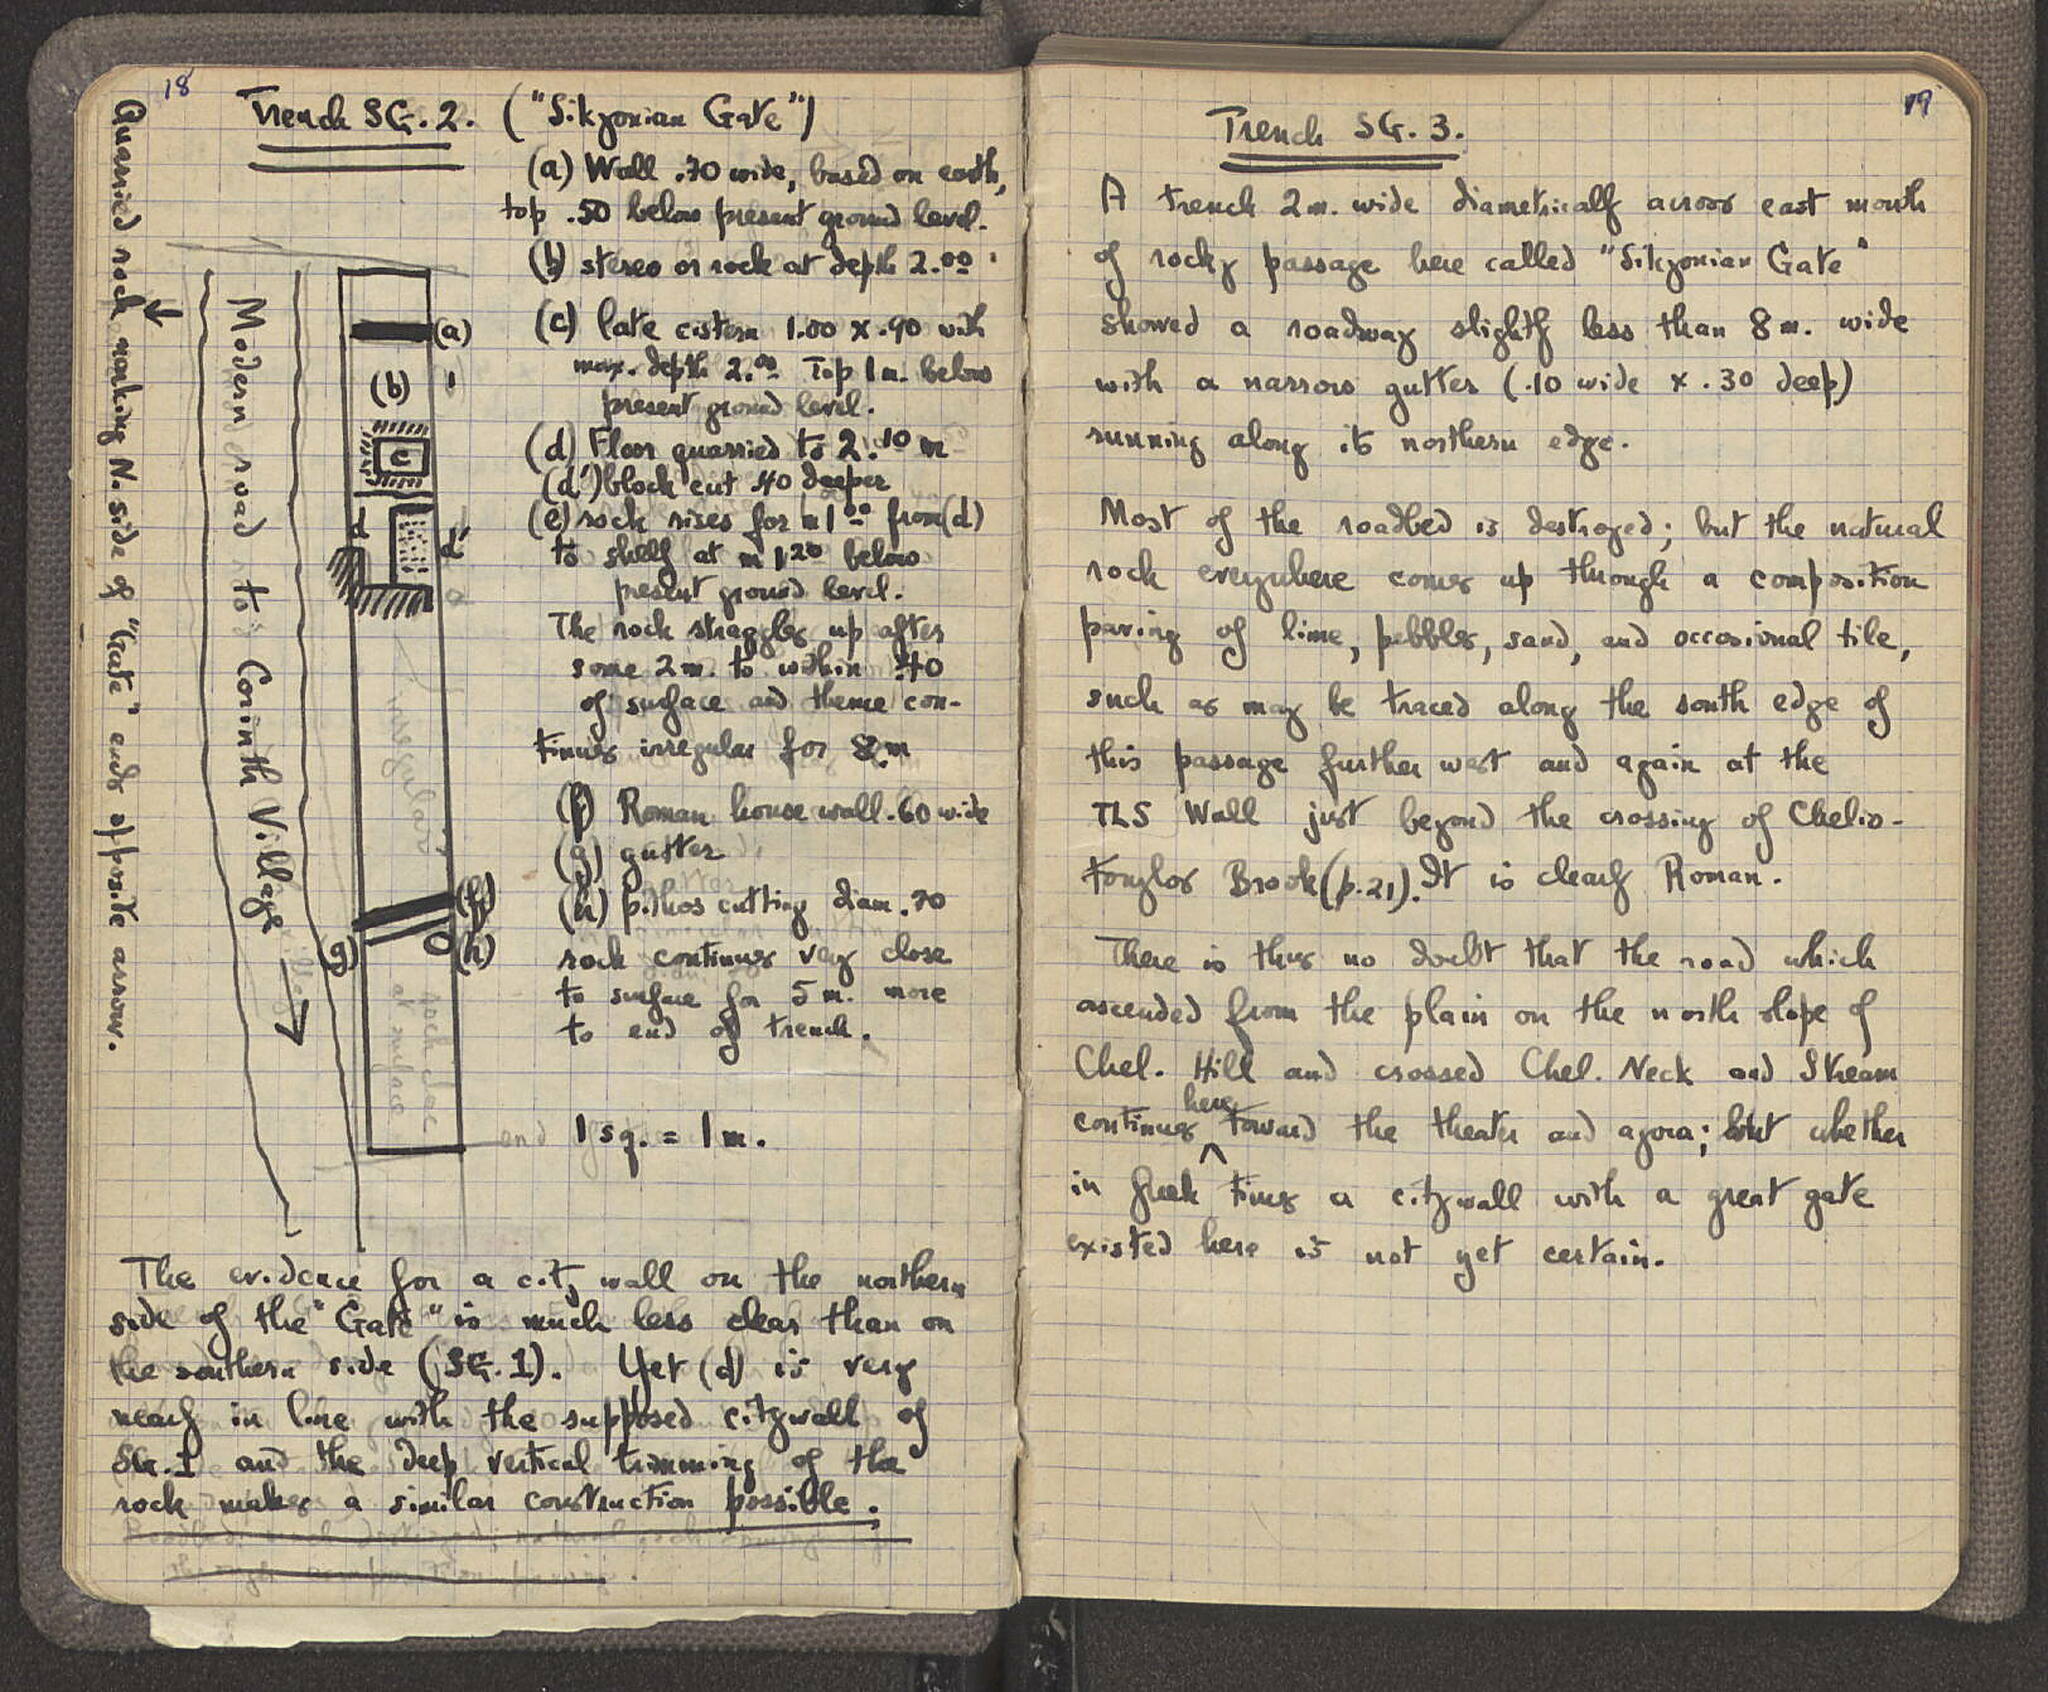 18
Trench SG. 2. ("Sikyonian Gate")
(a) Wall .70 wide, based on earth,
top .50 below present ground level.
(b) stereo or rock at depth 2.00
(c) late cistern 1.00 x .90 with
max. depth 2.00 Top 1 m. below
present ground level.
(d) Floor quarried to 2.10 m
(d') block cut .40 deeper
(e) rock rises for m 1.00 from (d)
to shelf at m 1.20 below
present ground level.
The rock straggles up after
some 2 m. to within .40
of surface and thence con-
tinues irregular for 8 m
(f) Roman house wall .60 wide
(g) gutter
(h) pithos cutting diam. .70
rock continues very close
to surface for 5 m. more
to end of trench.
1 sq. = 1 m.
Quarried rock marking N. side of "Gate" ends opposite arrow.
Modern road to Corinth Village
(a)
(b)
c
d
d'
irregular
(f)
(g)
(h)
rock close
at surface
end
The evidence for a city wall on the northern
side of the "Gate" is much less clear than on
the southern side (SG. 1). Yet (d) is very
nearly in line with the supposed city wall of
SG. 1 and the deep vertical trimming of the
rock makes a similar construction possible.
19
Trench SG. 3.
A trench 2 m. wide diametrically across east mouth
of rocky passage here called "Sikyonian Gate"
showed a roadway slightly less than 8 m. wide
with a narrow gutter (.10 wide x .30 deep)
running along its northern edge.
Most of the roadbed is destroyed; but the natural
rock everywhere comes up through a composition
paving of lime, pebbles, sand, and occasional tile,
such as may be traced along the south edge of
this passage further west and again at the
TLS Wall just beyond the crossing of Chelio-
tomylos Brook (p. 21). It is clearly Roman.
There is thus no doubt that the road which
ascended from the plain on the north slope of
Chel. Hill and crossed Chel. Neck and Stream
continues here toward the theater and agora; but whether
in Greek times a city wall with a great gate
existed here is not yet certain.